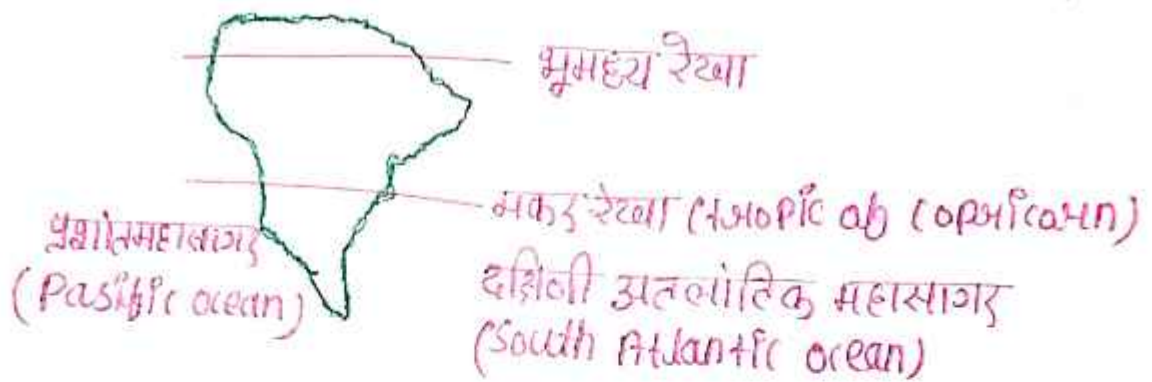 भूमध्य रेखा
मकर रेखा (Tropic of Capricorn)
प्रशांत महासागर
(Pasific ocean)
दक्षिणी अतलांतिक महासागर
(South Atlantic ocean)